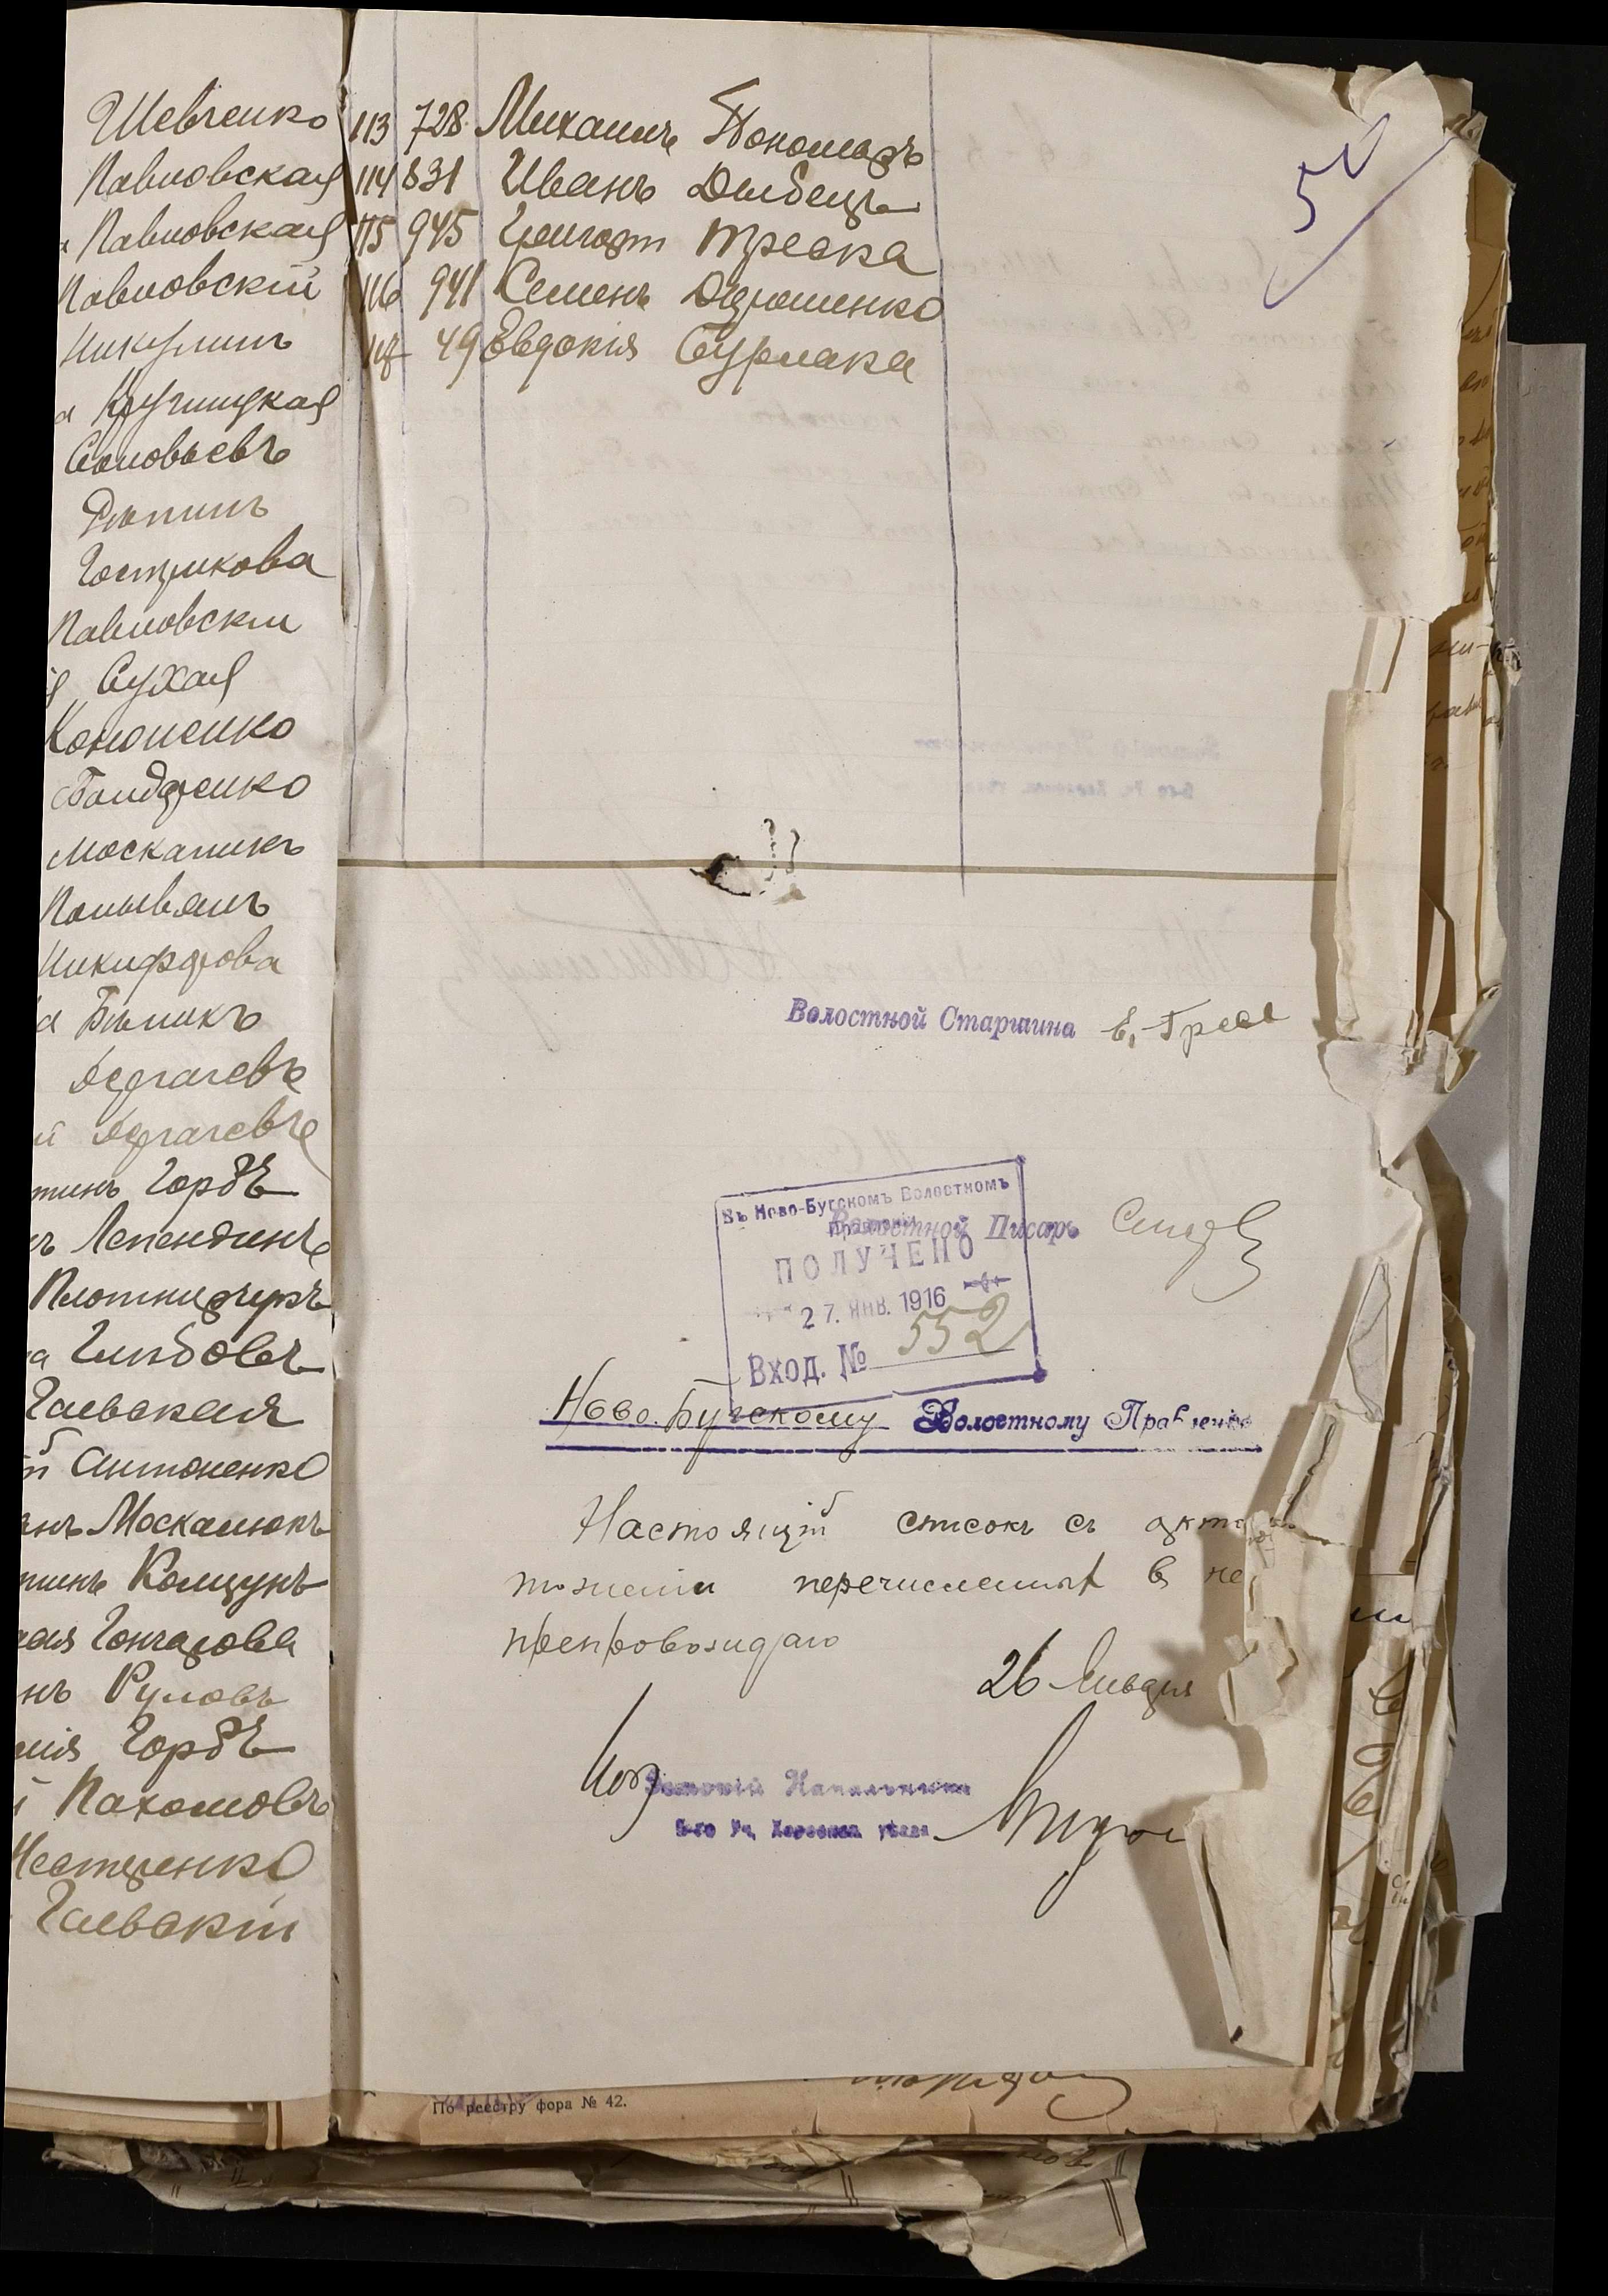 Шевченко
Павловская
Павловская
Павловскій
Никулинъ
Кругницкая
Соловьевъ
Гострикова
Павловскій
Сухая
Кононенко
Бондаренко
Москаликъ
Никифорова
Бѣликъ
Дергачевъ
Дергачевъ
Горбъ
Лепендинъ
Глибовъ
Гаевская
Антоненко
Москалюкъ
Колцунъ
Гончарова
Руловъ
Горбъ
Пахомовъ
Нестеренко
Гаевскій
113 728 Михаилъ Пономарь
114 831 Иванъ Дыбецъ
115 945 Григорій Треска
116 941 Семенъ Дорошенко
117 49 Евдокія Бурлака
5
Волостной Старшина Е. Грес
Въ Ново-Бугскомъ Волостномъ
Правленіи
Волостной Писарь
ПОЛУЧЕНО
27. ЯНВ. 1916
Вход. № 552
Ново-Бугскому Волостному Правленію
Настоящій списокъ съ
перечисленныя в не
препровождаю
26 Января
Земскій Начальникъ
5-го Уч. Херсонск. уѣзда
По реестру фора № 42.